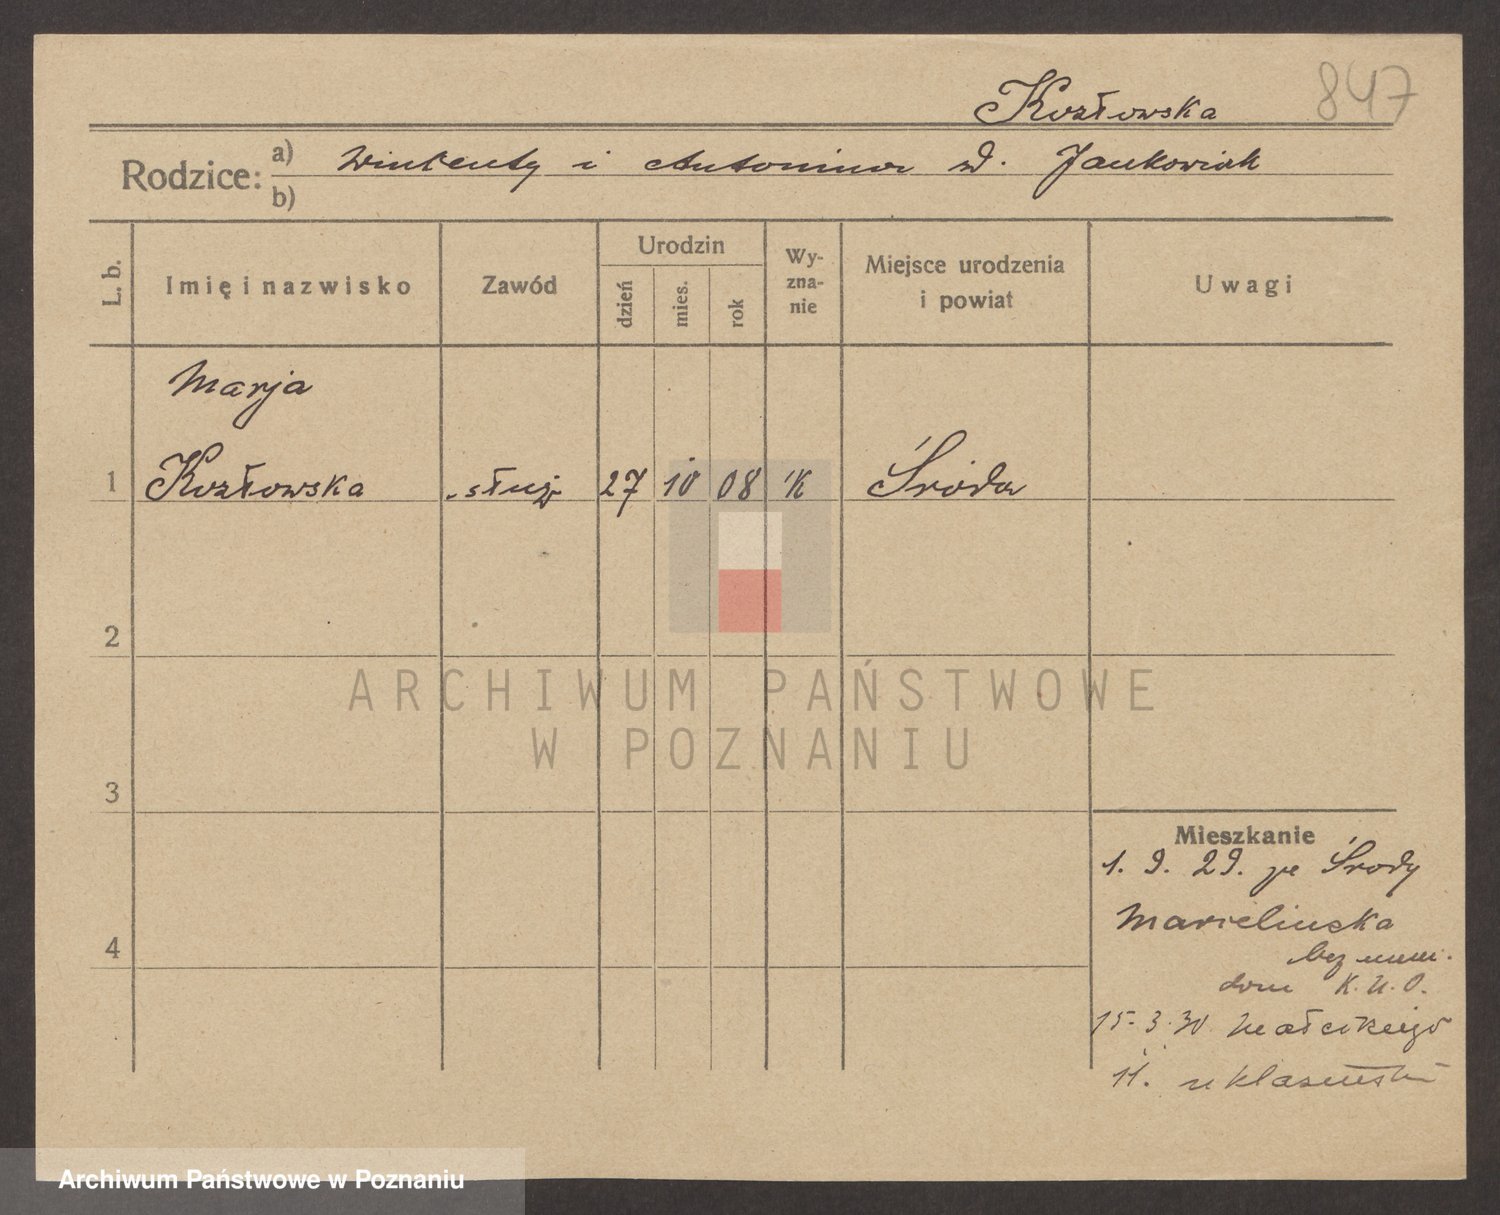 847
Kozłowska
Rodzice: a) Wincenty i Antonina d. Jankowiak
b)
L. b.
Imię i nazwisko
Zawód
Urodzin
dzień
mies.
rok
Wy-
zna-
nie
Miejsce urodzenia
i powiat
Uwagi
Marja
1 Kozłowska służ 27 10 08 K Środa
2
ARCHIWUM PAŃSTWOWE
W POZNANIU
3
Mieszkanie
1. 9. 29. ze Środy
Marcelińska
4
bez num.
dom K. U. O.
15. 3. 30
11. u
Archiwum Państwowe w Poznaniu